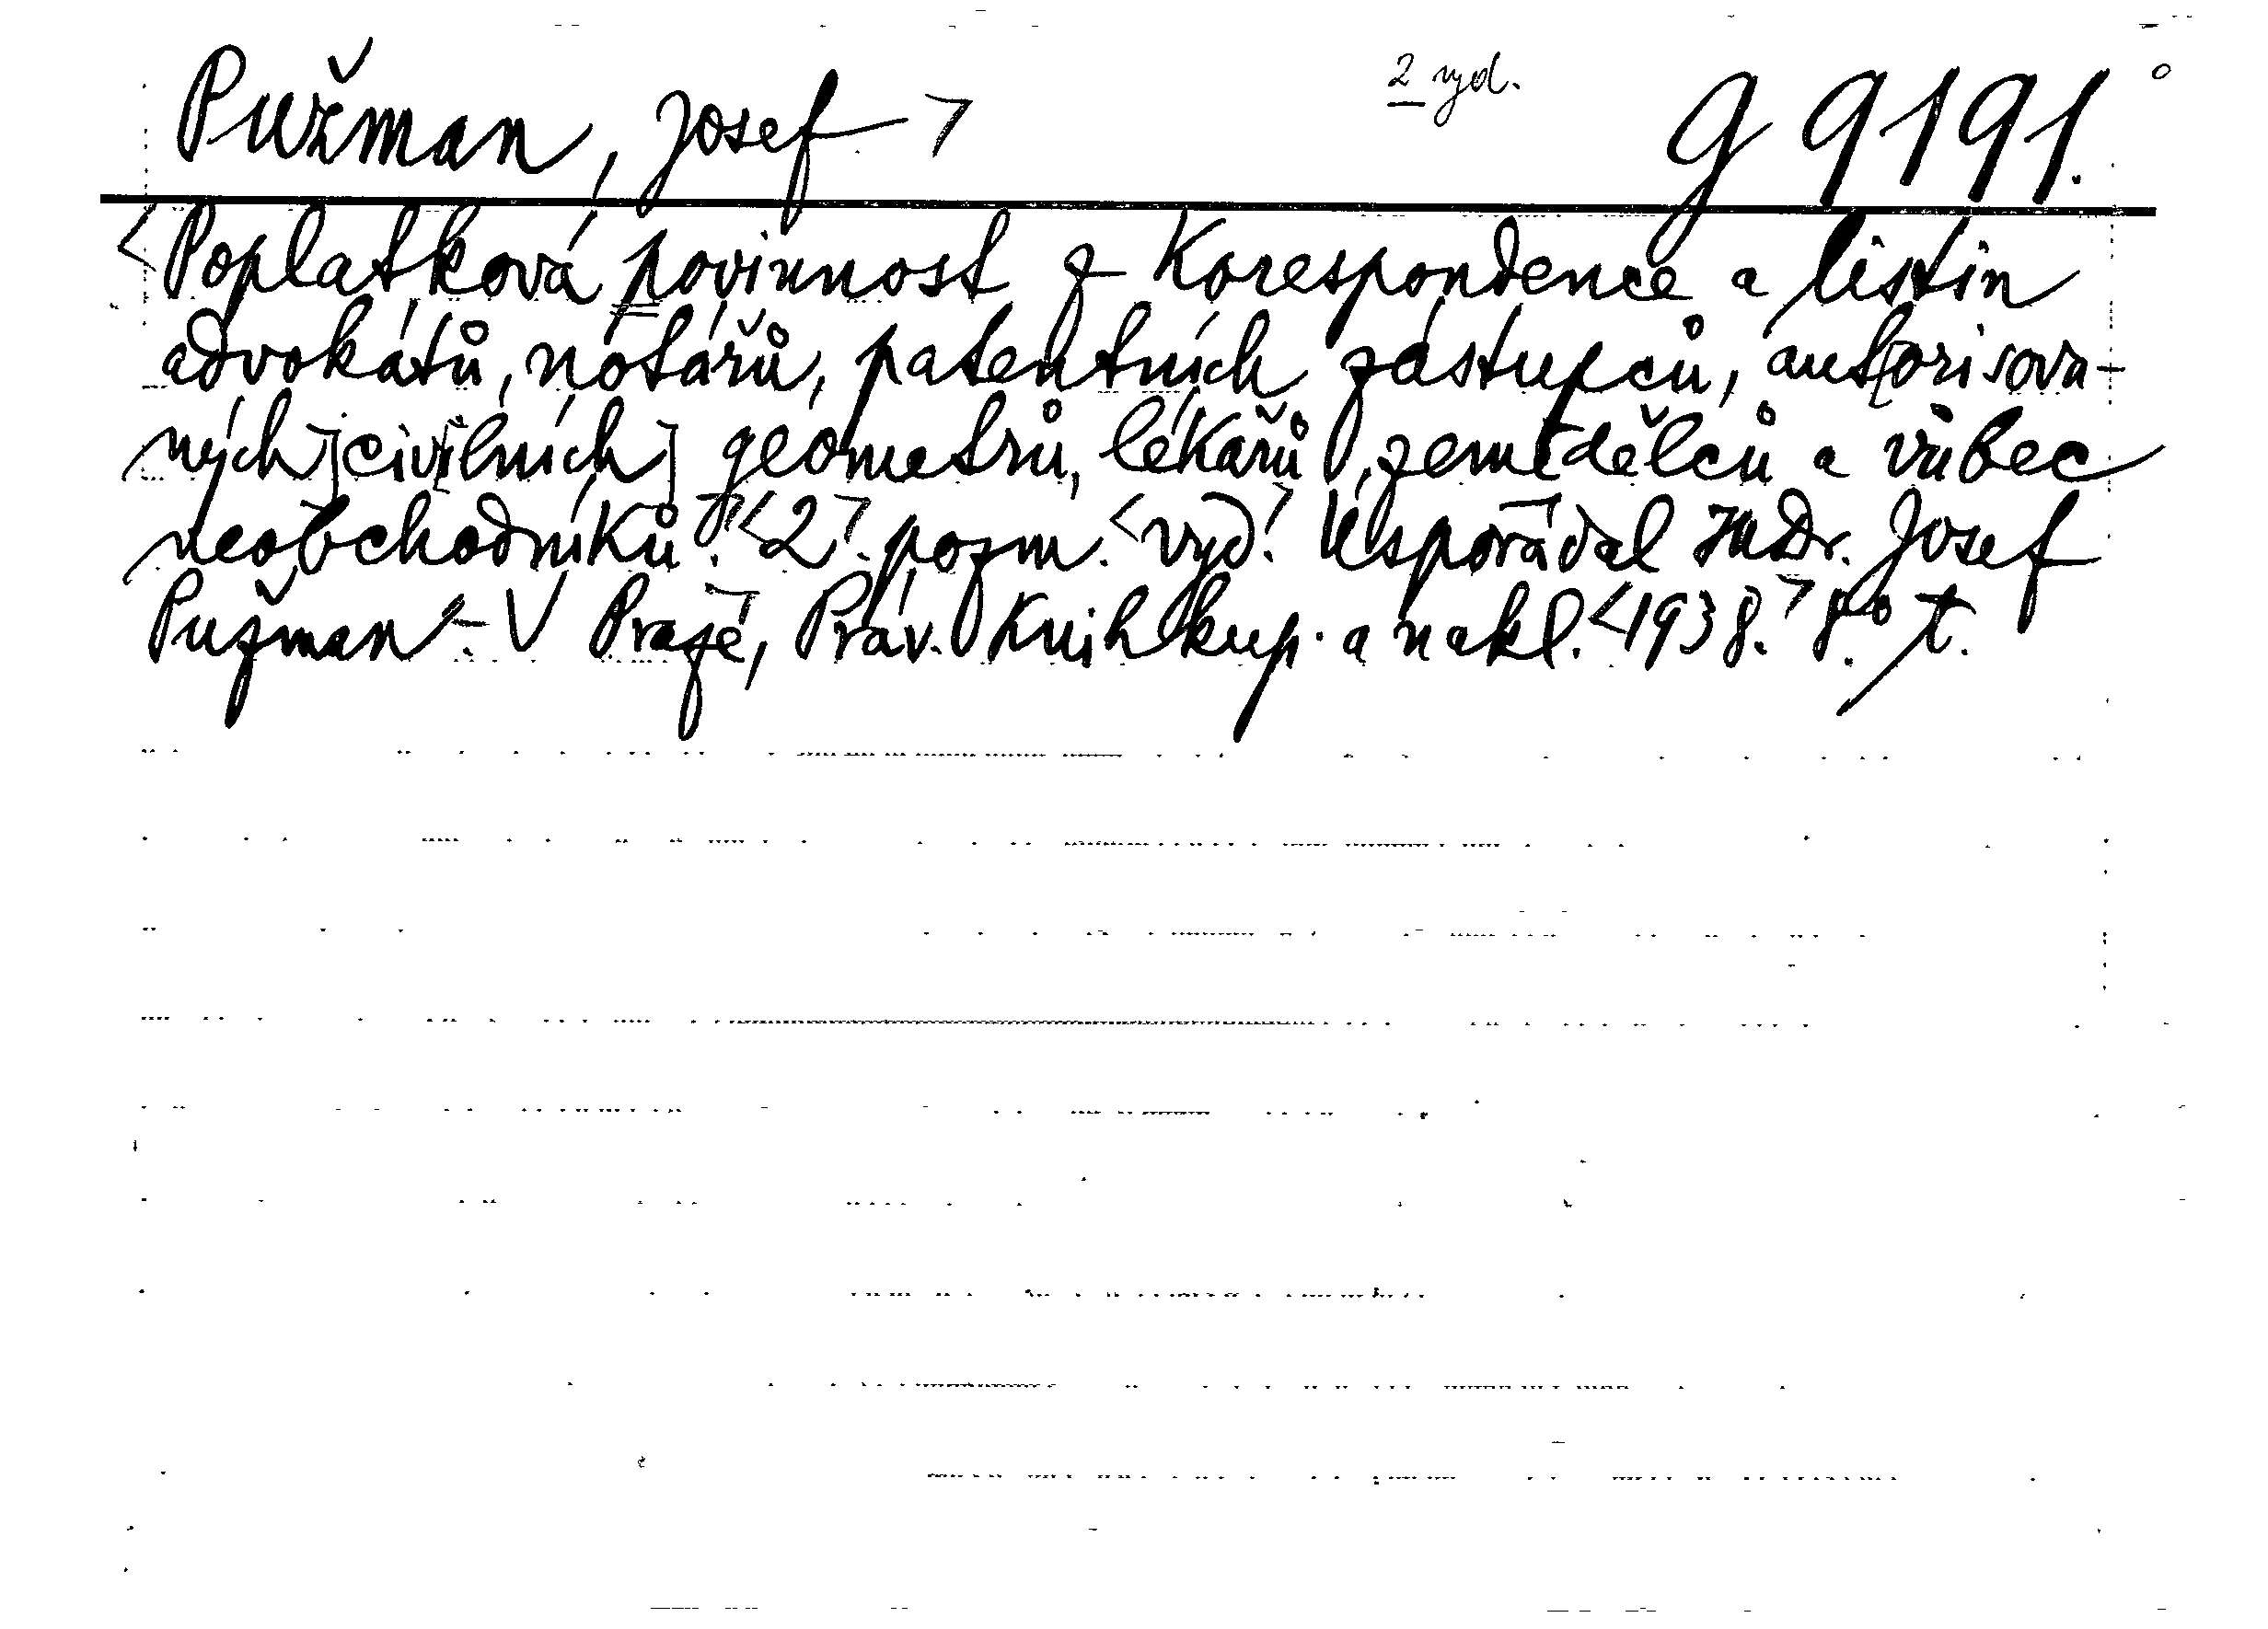 Pužman, Josef > 2 vyd. G 9191.
<Poplatková povinnost z korespondence a listin
advokátů, notářů, patentních zástupců, autorisova-
ných [civilních] geometrů, lékařů, zemědělců a vůbec
neobchodníků.> <2.> pozm. <vyd.> Uspořádal JUDr. Josef
Pužman. - V Praze, Práv. knihkup. a nakl. <1938.> 8.° t.